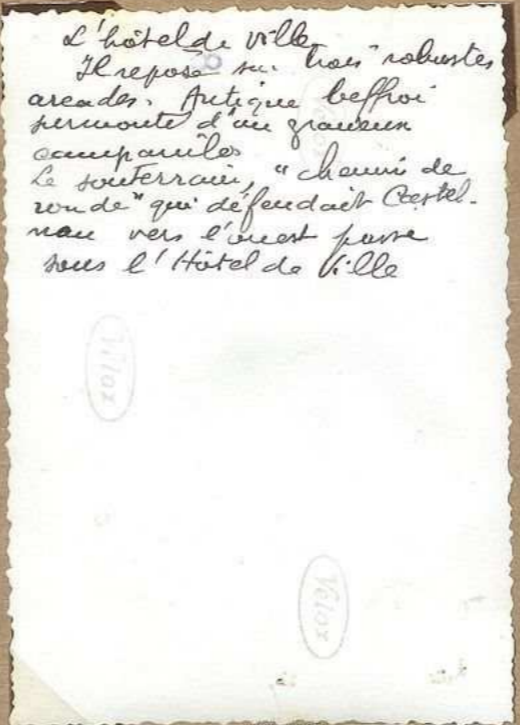 L'hôtel de ville
Il repose sur trois robustes
arcades. Antique beffroi
surmonté d'un gracieux
campanile
Le souterrain, "chemin de
ronde" qui défendait Castel-
nau vers l'ouest passe
sous l'Hôtel de Ville
Velox
Velox
Velox